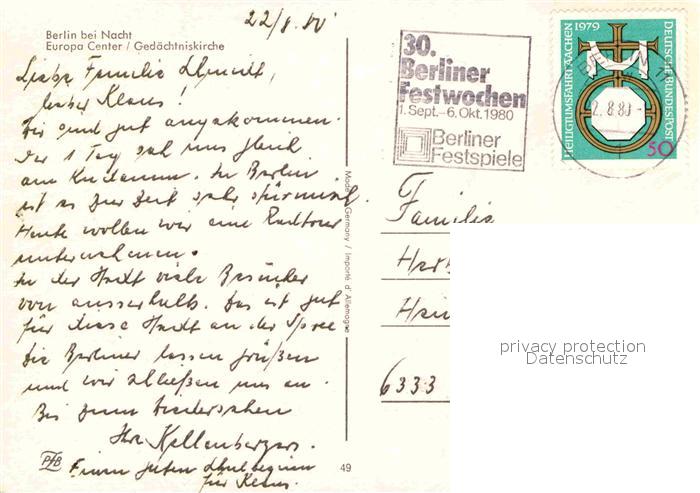 22/8.80
Berlin bei Nacht
Europa Center / Gedächtniskirche
Liebe Familie Schmidt,
lieber Klaus!
Wir sind gut angekommen.
Der 1 Tag sah uns gleich
am Kudamm. In Berlin
ist es zur Zeit sehr stürmisch.
Heute wollen wir eine Radtour
unternehmen.
In der Stadt viele Besucher
von ausserhalb. Das ist gut
für diese Stadt an der Spree
Die Berliner lassen grüßen
und wir schließen uns an.
Bis zum Wiedersehen
Ihre Kellenbergers.
Einen guten Schulbeginn
für Klaus.
PHB
49
Made in Germany / Importé d'Allemagne
30.
Berliner
Festwochen
1. Sept.–6. Okt. 1980
Berliner
Festspiele
HEILIGTUMSFAHRT AACHEN 1979
DEUTSCHE BUNDESPOST
50
2.8.80
Familie
6333
privacy protection
Datenschutz